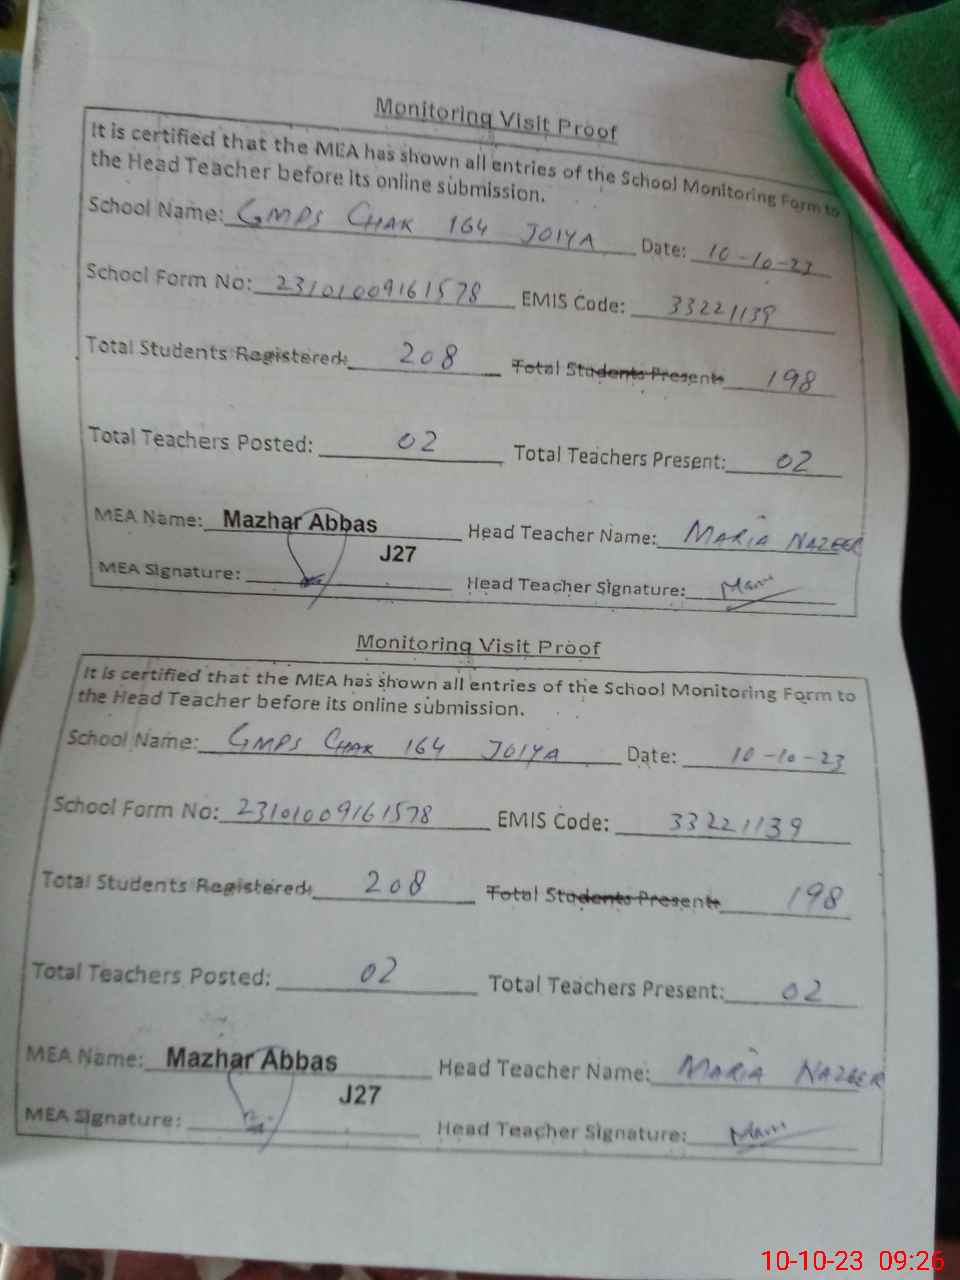 Monitoring Visit Proof
It is certified that the MEA has shown all entries of the School Monitoring Form to
the Head Teacher before its online submission.
School Name: GMPS CHAK 164 JOIYA Date: 10-10-23
School Form No: 23101009161578 EMIS Code: 33221139
Total Students Registered: 208 Total Students Present: 198
Total Teachers Posted: 02 Total Teachers Present: 02
MEA Name: Mazhar Abbas Head Teacher Name: MARIA NAZEER
J27
MEA Signature: Head Teacher Signature:
Monitoring Visit Proof
It is certified that the MEA has shown all entries of the School Monitoring Form to
the Head Teacher before its online submission.
School Name: GMPS CHAK 164 JOIYA Date: 10-10-23
School Form No: 23101009161578 EMIS Code: 33221139
Total Students Registered: 208 Total Students Present: 198
Total Teachers Posted: 02 Total Teachers Present: 02
MEA Name: Mazhar Abbas Head Teacher Name: MARIA NAZEER
J27
MEA Signature: Head Teacher Signature:
10-10-23 09:26